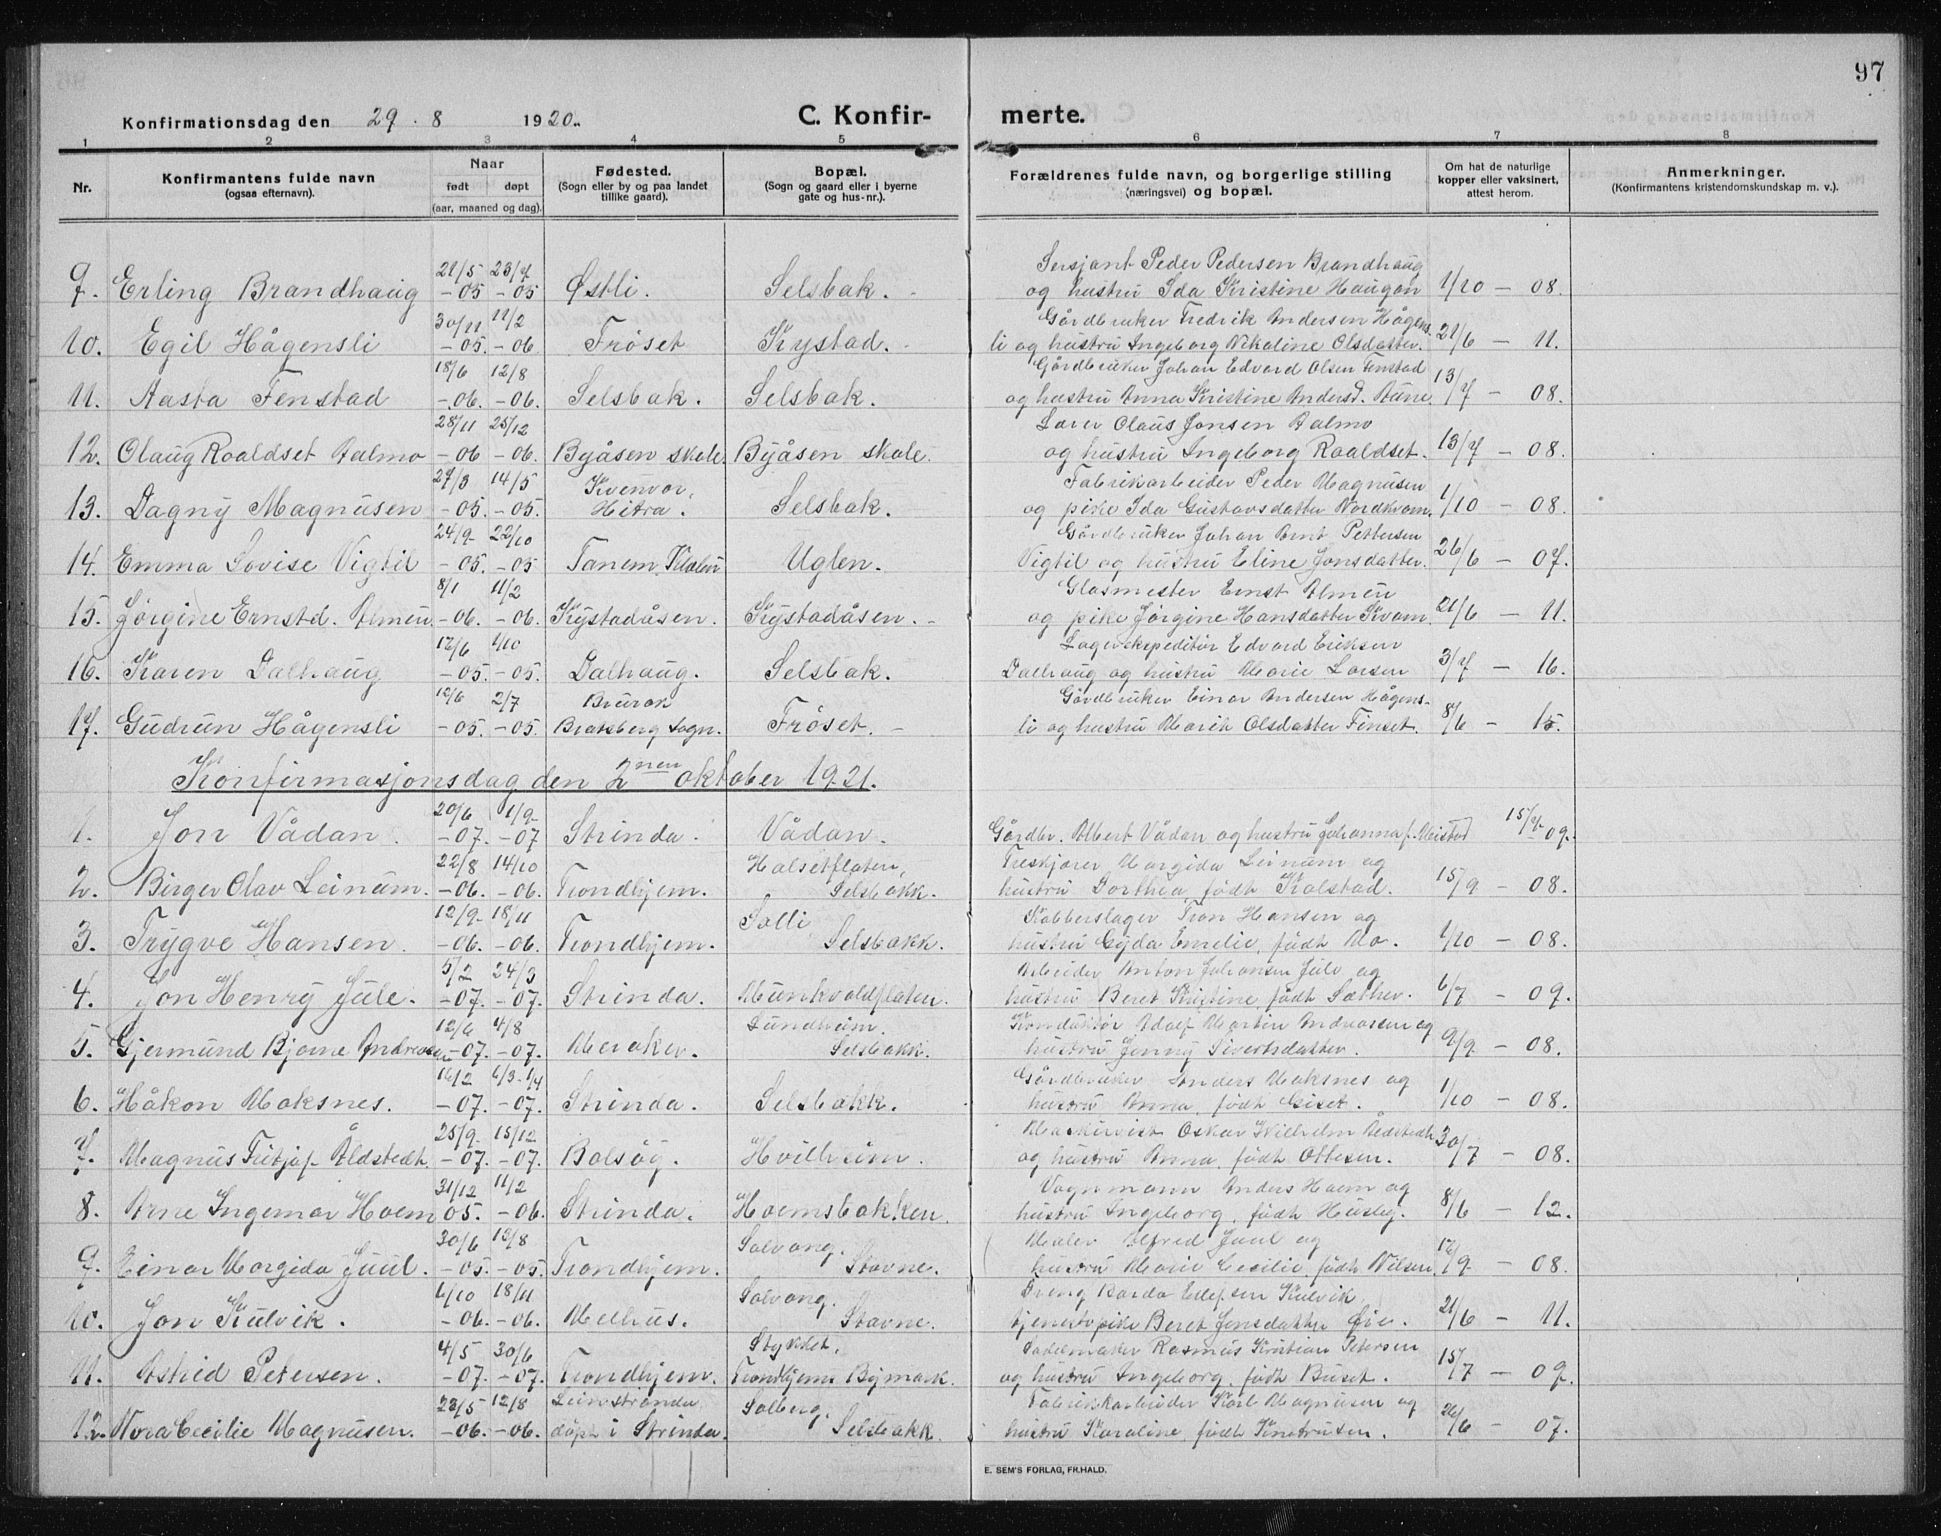 97
Konfirmationsdag den 29. 8 1920. C. Konfirmerte.
1 2 3 4 5 6 7 8
Nr. Konfirmantens fulde navn (ogsaa efternavn). Naar født døpt (aar, maaned og dag). Fødested. (Sogn eller by og paa landet tillike gaard). Bopæl. (Sogn og gaard eller i byerne gate og hus-nr.). Forældrenes fulde navn, og borgerlige stilling (næringsvei) og bopæl. Om hat de naturlige kopper eller vaksinert, attest herom. Anmerkninger. (Konfirmantens kristendomskundskap m. v.).
21/5 23/7 Sersjant Peder Pedersen Brandhaug
9. Erling Brandhaug -05 -05 Østli. Selsbak. og hustru Ida Kristine Haugan 1/10 - 08.
30/11 11/2 Gårdbruker Fredrik Andersen Hågens-
10. Egil Hågensli -05. -06 Frøset Kystad. li og hustru Ingeborg Nikoline Olsdatter. 21/6 - 11.
18/6 12/8 Gårdbruker Johan Edvard Olsen Fenstad
11. Aasta Fenstad -06. -06. Selsbak. Selsbak. og hustru Anna Kristine Andersd. Aune. 13/7 - 08.
28/11 25/12 Lærer Claus Jonsen Dalmo
12. Olaug Roaldset Dalmo -06 -06. Byåsen skole. Byåsen skole. og hustru Ingeborg Roaldset. 13/7 - 08.
27/3 14/5 Kvenvær, Fabrikarbeider Peder Magnusen
13. Dagny Magnusen -05. -05. Hitra. Selsbak. og pike Ida Gustavsdatter Nordkvam. 1/10 - 08.
24/9 22/10 Gårdbruker Johan Arnt Pettersen
14. Emma Lovise Vigtil -05. -05 Tanem, Klæbu Uglen. Vigtil og hustru Eline Jonsdatter. 26/6 - 07.
8/1 11/2 Glasmester Ernst Almén
15. Jørgine Ernstd. Almén. -06. -06. Kystadåsen. Kystadåsen. og pike Jørgine Hansdatter Kvam. 21/6 - 11.
12/6 1/10 Lagerekspeditør Edvard Eriksen
16. Karen Dalhaug -05. -05. Dalhaug. Selsbak. Dalhaug og hustru Marie Larsen 3/7 - 16.
12/6 2/7 Brurok Gårdbruker Einar Andersen Hågens-
17. Gudrun Hågensli -05. -05. Bratsberg sogn. Frøset. li og hustru Marit Olsdatter Finset. 8/6 - 15.
Konfirmasjonsdag den 2nen oktober 1921.
20/6 1/9
1. Jon Vådan. -07. -07 Strinda. Vådan. Gårdbr. Albert Vådan og hustru Johanna f. Meistad 15/7 09.
22/8 14/10 Halsetflaten, Treskjærer Margido Leinum og
2. Birger Olav Leinum. -06. -06. Trondhjem. Selsbakk. hustru Dorthea, født Kolstad. 15/9 - 08.
12/9 18/11 Solli Kobberslager Tron Hansen og
3. Trygve Hansen. -06. -06. Trondhjem. Selsbakk. hustru Gyda Emelie, født Mo. 1/10 - 08.
5/2 24/3 Arbeider Anton Johansen Jule og
4. Jon Henry Jule. -07. -07. Strinda. Munkvoldflaten. hustru Beret Kristine, født Sæther. 6/7 - 09.
12/6 4/8 Lundheim. Konduktør Adolf Martin Andreassen og
5. Gjermund Bjarne Andreasen -07. -07. Meraker. Selsbakk. hustru Jenny Sivertsdatter. 9/9 - 08.
16/2 6/3-1/4 Gårdbruker Anders Moksnes og
6. Håkon Moksnes. -07. -07. Strinda. Selsbakk. hustru Anna, født Giset. 1/10 - 08.
25/9 15/12 Maskinist Oskar Wilhelm Åldstedt
7. Magnus Fritjof Åldstedt. -07. -07. Bolsøy. Hvilheim. og hustru Anna, født Ottesen. 30/7 - 08.
31/12 11/2 Vognmann Anders Hoem og
8. Arne Ingemar Hoem 05. -06. Strinda. Hoemsbakken. hustru Ingeborg, født Husby. 8/6 - 12.
30/6 13/8 Solvang. Maler Alfred Juul og
9. Einar Margido Juul. -05. -05. Trondhjem. Stavne. hustru Marie Cecilie, født Nilsen. 12/9 - 08.
6/10 18/11 Solvang. Dreng Bardo Ellefsen Kulvik,
10. Jon Kulvik. -06. -06. Melhus. Stavne. tjenestepike Beret Jonsdatter Øie. 21/6 - 11.
4/5 30/6 Stykket, Sadelmaker Rasmus Kristian Petersen
11. Astrid Petersen. -07. -07. Trondhjem. Trondhjems Bymark. og hustru Ingeborg, født Buset. 15/7 - 09.
23/5 12/8 Leinstranda, Solberg, Fabrikkarbeider Karl Magnusen og
12. Nora Cecilie Magnusen. -06. -06. døpt i Strinda. Selsbakk. hustru Karoline, født Knutrusen. 26/6 - 07.
E. SEM'S FORLAG, FR.HALD.